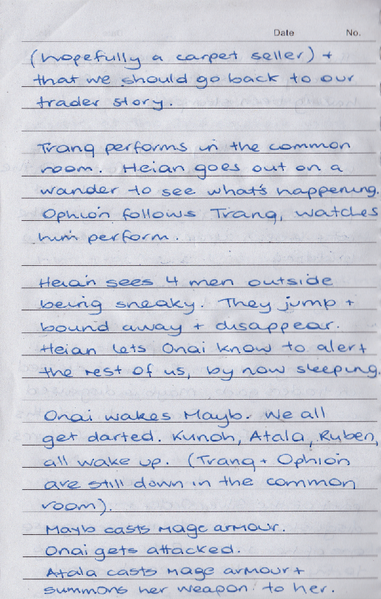 Date No.
(hopefully a carpet seller) +
that we should go back to our
trader story.
Trang performs in the common
room. Heian goes out on a
wander to see what's happening.
Ophion follows Trang, watches
him perform.
Heian sees 4 men outside
being sneaky. They jump +
bound away + disappear.
Heian lets Onai know to alert
the rest of us, by now sleeping.
Onai wakes Mayb. We all
get darted. Kunoh, Atala, Ruben,
all wake up. (Trang + Ophion
are still down in the common
room).
Mayb casts mage armour.
Onai gets attacked.
Atala casts mage armour +
summons her weapon to her.